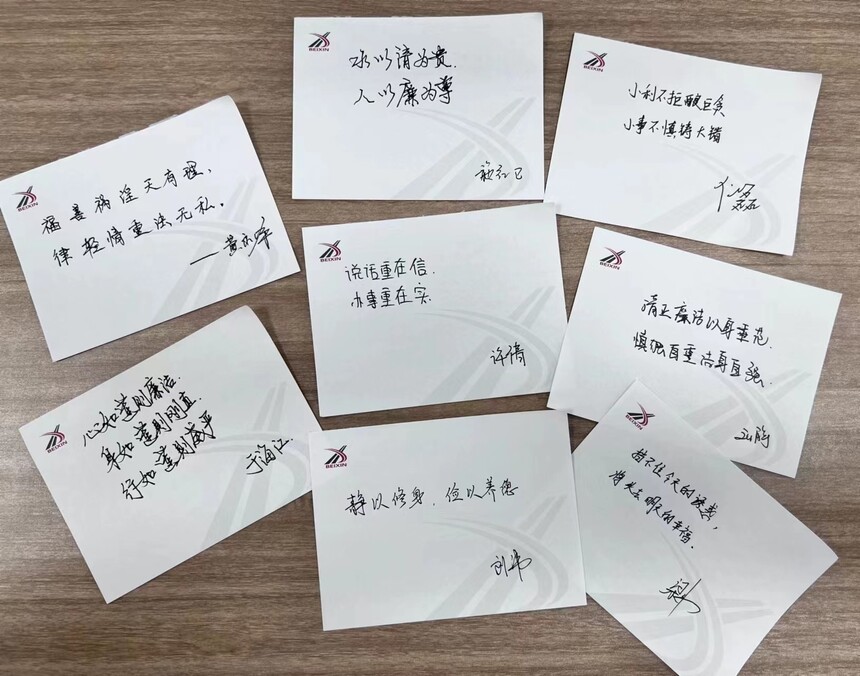 BEIXIN
水以清为贵.
人以廉为尊
BEIXIN
小利不拒酿巨贪
小事不慎铸大错
BEIXIN
福善祸淫天有理,
律轻情重法无私.
BEIXIN
说话重在信.
办事重在实.
许倩
BEIXIN
清正廉洁以身垂范.
慎独自重洁身自强.
BEIXIN
心如莲则廉洁.
身如莲则刚直.
行如莲则威严
于海江
BEIXIN
静以修身,俭以养德
刘帅
BEIXIN
挡不住今天的诱惑,
将失去明天的幸福.